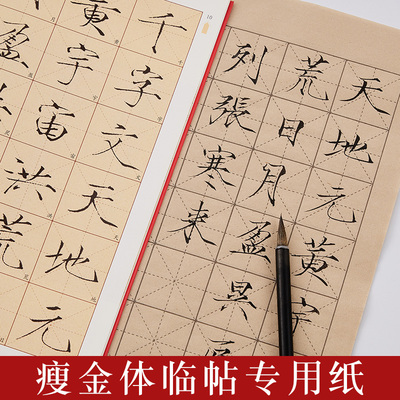 千字文天地元
黃宇宙洪荒
盈
天地元黃宇
荒日月盈昃
列張寒来
瘦金体临帖专用纸